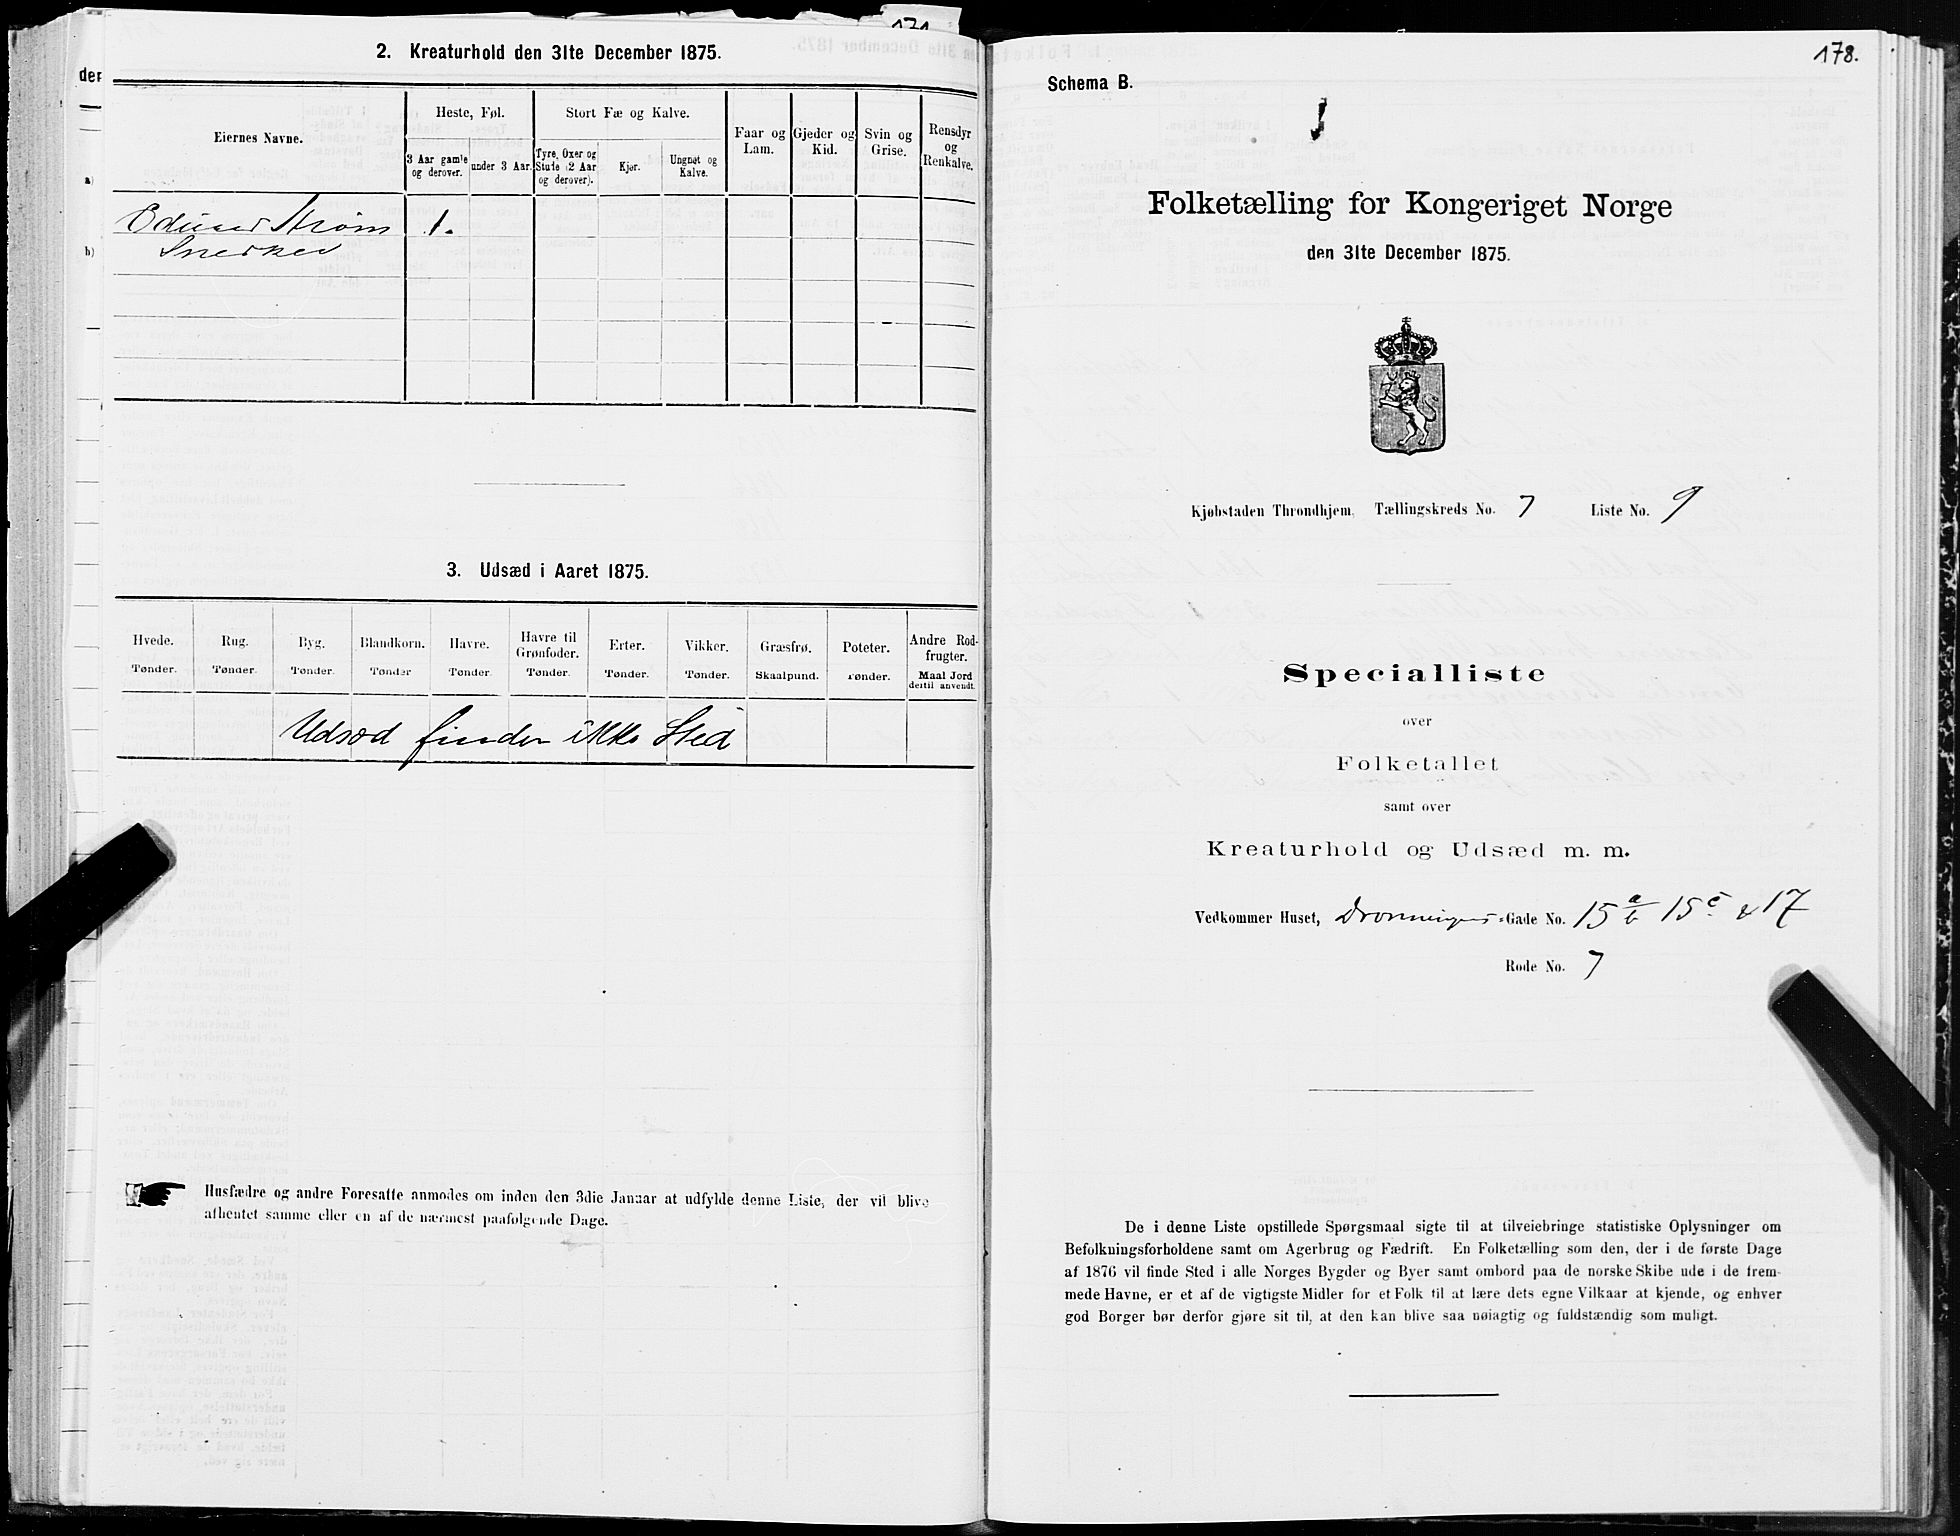 171
2. Kreaturhold den 31te December 1875.
der
Eiernes Navne.
Heste, Føl.
Stort Fæ og Kalve.
Faar og Lam.
Gjeder og Kid.
Svin og Grise.
Rensdyr og Renkalve.
3 Aar gamle og derover.
under 3 Aar.
Tyre, Oxer og Stude (2 Aar og derover).
Kjør.
Ungnøt og Kalve.
a)
b)
Strøm 1.
Snedker
3. Udsæd i Aaret 1875.
Hvede. Rug. Byg. Blandkorn. Havre. Havre til Grønfoder. Erter. Vikker. Græsfrø. Poteter. Andre Rodfrugter.
Tønder. Tønder. Tønder. Tønder Tønder. Tønder. Tønder. Tønder. Skaalpund. Tønder. Maal Jord dertil anvendt.
Udsæd finder ikke Sted
Husfædre og andre Foresatte anmodes om inden den 3die Januar at udfylde denne Liste, der vil blive
afhentet samme eller en af de nærmest paafølgende Dage.
178.
Schema B.
Folketælling for Kongeriget Norge
den 31te December 1875.
Kjøbstaden Throndhjem. Tællingskreds No. 7 Liste No. 9
Specialliste
over
Folketallet
samt over
Kreaturhold og Udsæd m. m.
Vedkommer Huset, Dronningens-Gade No. 15 a/b 15 c & 17
Rode No. 7
De i denne Liste opstillede Spørgsmaal sigte til at tilveiebringe statistiske Oplysninger om
Befolkningsforholdene samt om Agerbrug og Fædrift. En Folketælling som den, der i de første Dage
af 1876 vil finde Sted i alle Norges Bygder og Byer samt ombord paa de norske Skibe ude i de frem-
mede Havne, er et af de vigtigste Midler for et Folk til at lære dets egne Vilkaar at kjende, og enhver
god Borger bør derfor gjøre sit til, at den kan blive saa nøiagtig og fuldstændig som muligt.